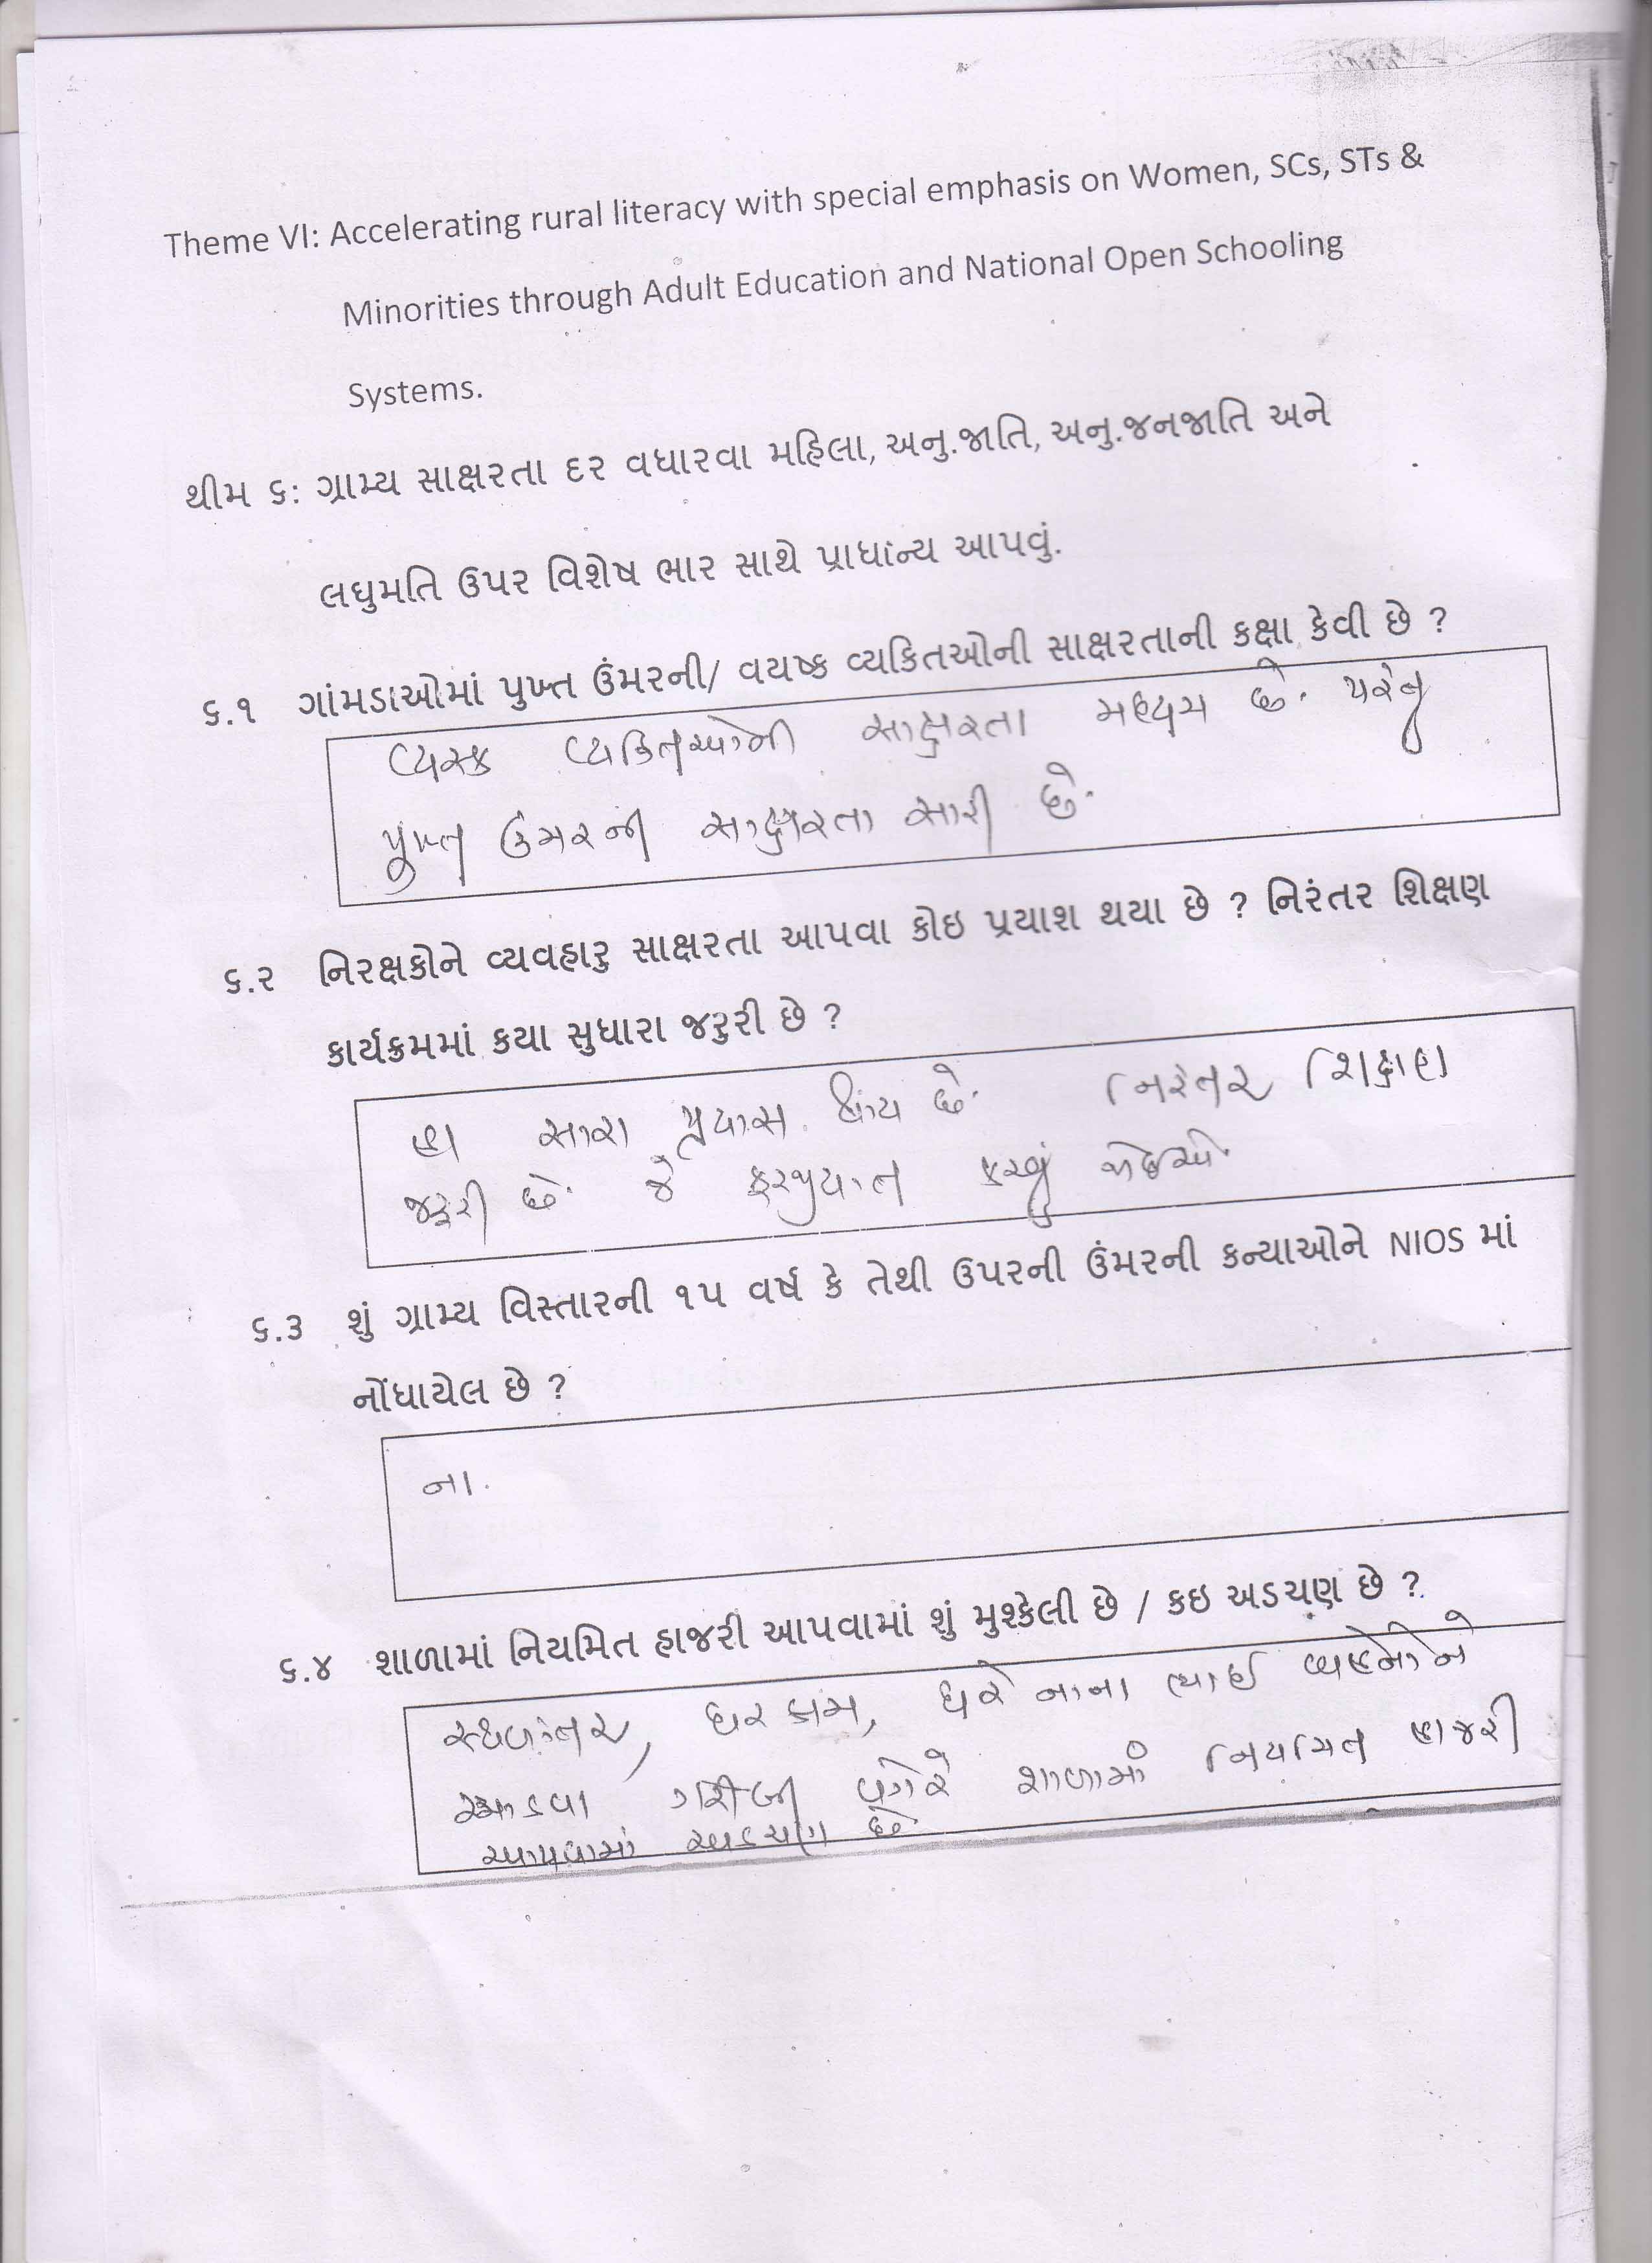 Theme VI: Accelerating rural literacy with special emphasis on Women, SCs, STs &
Minorities through Adult Education and National Open Schooling
Systems.
થીમ ૬: ગ્રામ્ય સાક્ષરતા દર વધારવા મહિલા, અનુ.જાતિ, અનુ.જનજાતિ અને
લઘુમતિ ઉપર વિશેષ ભાર સાથે પ્રાધાંન્ય આપવું.
૬.૧ ગાંમડાઓમાં પુખ્ત ઉંમરની/ વયષ્ક વ્યકિતઓની સાક્ષરતાની કક્ષા કેવી છે ?
વ્યસ્ક વ્યકિતઓની સાક્ષરતા મધ્યમ છે. પરંતુ
પુખ્ત ઉંમરની સાક્ષરતા સારી છે.
૬.૨ નિરક્ષકોને વ્યવહારુ સાક્ષરતા આપવા કોઇ પ્રયાશ થયા છે ? નિરંતર શિક્ષણ
કાર્યક્રમમાં કયા સુધારા જરુરી છે ?
હા સારા પ્રયાસ થાય છે. નિરંતર શિક્ષણ
જરૂરી છે. જે ફરજીયાત કરવું જોઈએ.
૬.૩ શું ગ્રામ્ય વિસ્તારની ૧૫ વર્ષ કે તેથી ઉપરની ઉંમરની કન્યાઓને NIOS માં
નોંધાયેલ છે ?
ના.
૬.૪ શાળામાં નિયમિત હાજરી આપવામાં શું મુશ્કેલી છે / કઇ અડચણ છે ?
સ્થળાંતર, ઘરકામ, ઘરે નાના ભાઈ બહેનોને
રમાડવા ગરીબી વગેરે શાળામાં નિયમિત હાજરી
આપવામાં અડચણ છે.